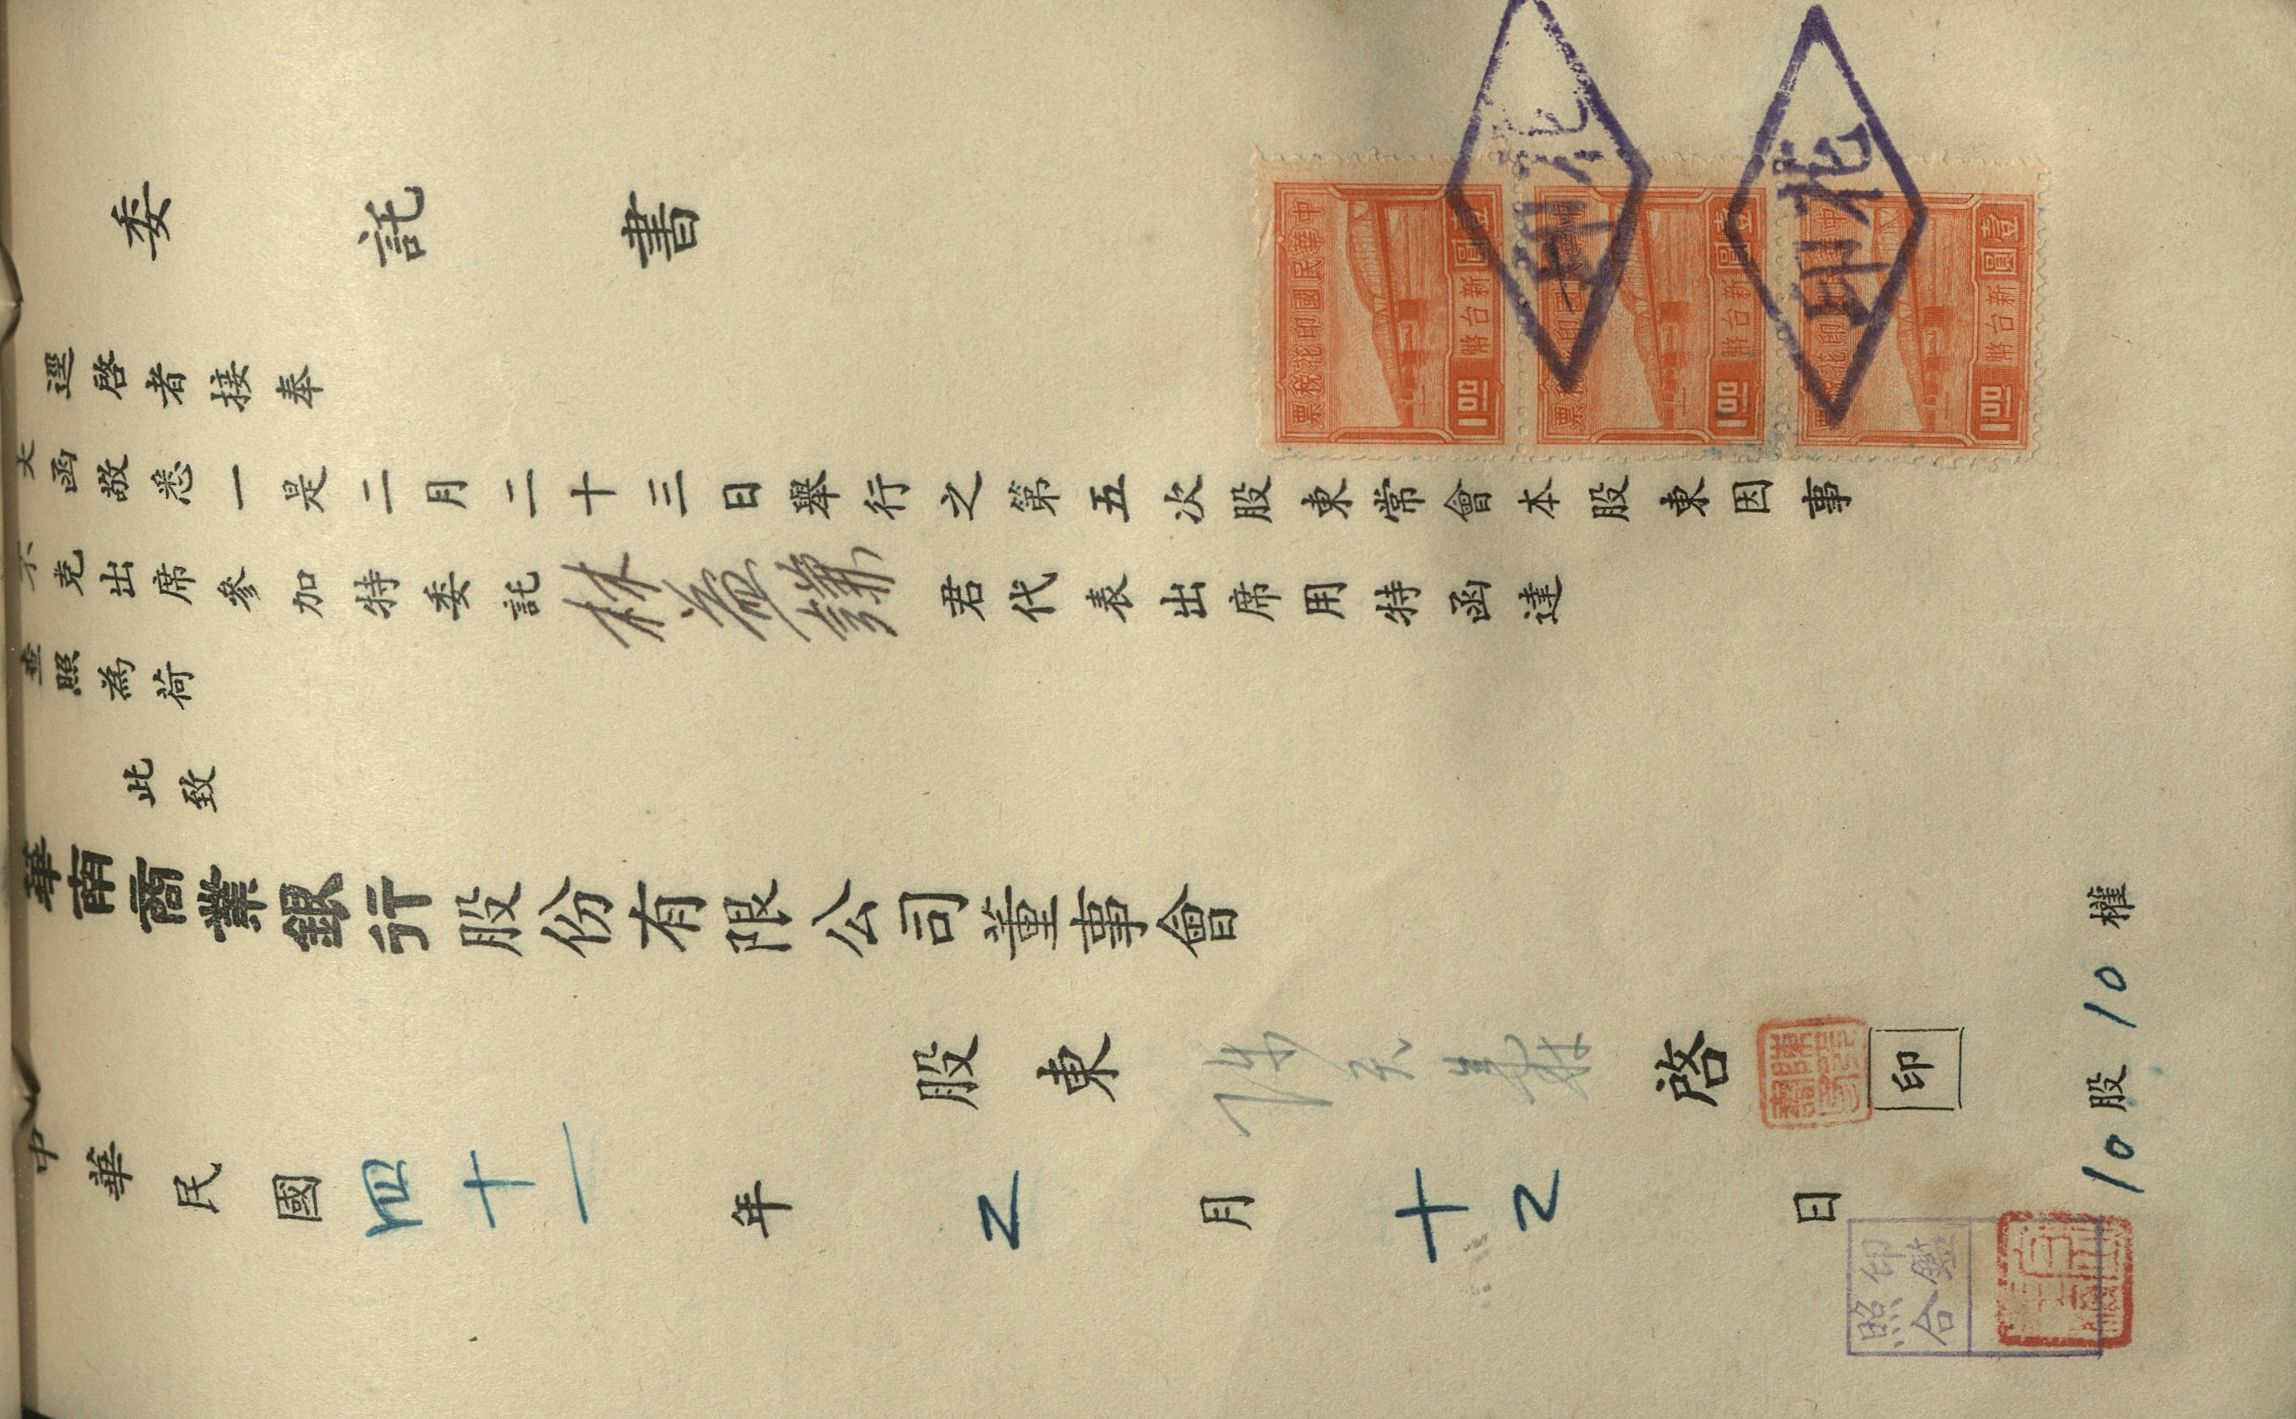 委託書
逕啓者接奉
大函敬悉一是二月二十三日舉行之第五次股東常會本股東因事
不克出席參加特委託林益謙君代表出席用特函達
查照為荷
此致
華南商業銀行股份有限公司董事會
股東 啓 印
中華民國四十一年2月十2日
10股10權
中華民國印花稅票
壹圓
新台幣
1.00
印花
壹圓
新台幣
1.00
印花
壹圓
新台幣
1.00
印鑑
照合